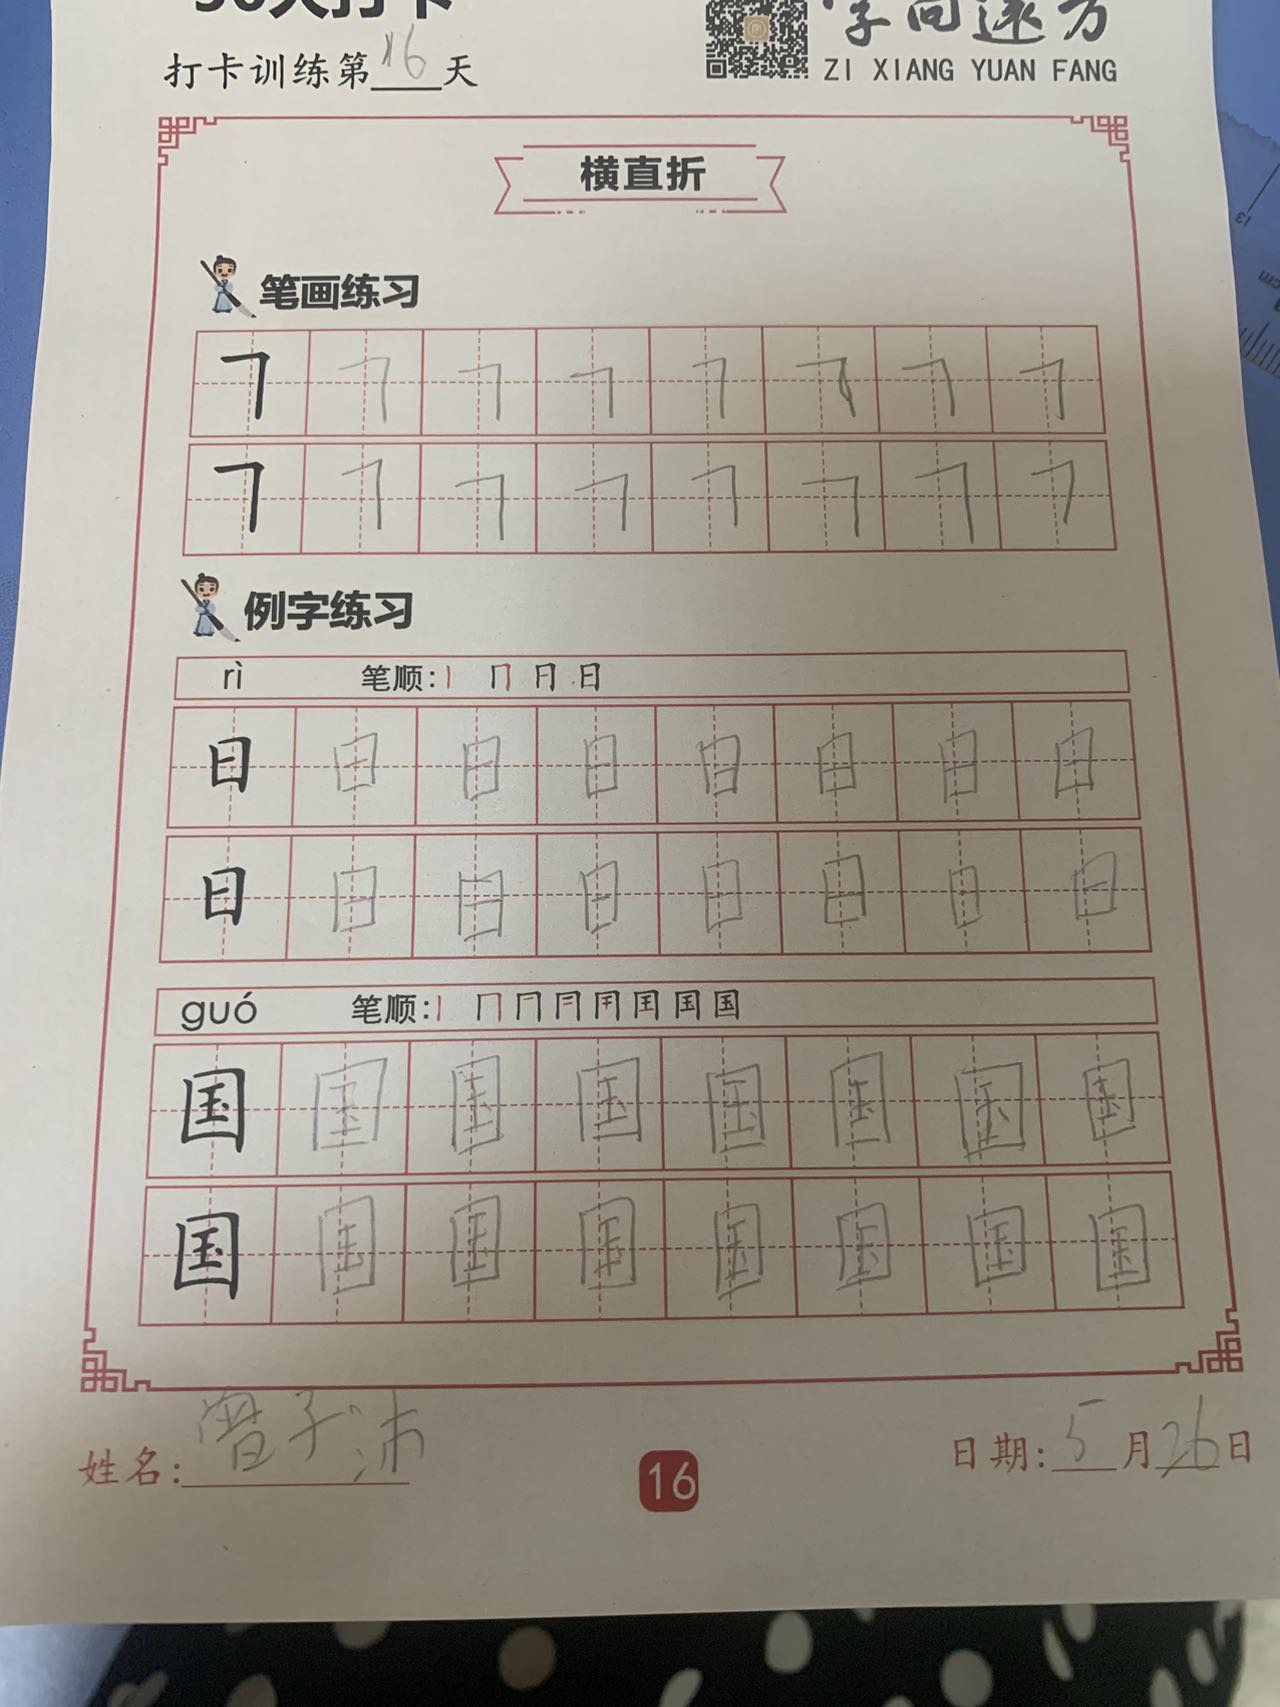 打卡训练第16天
ZI XIANG YUAN FANG
横直折
笔画练习
例字练习
rì 笔顺:
日 日 日 日 日 日 日 日
日 日 日 日 日 日 日 日
guó 笔顺:
国 国 国 国 国 国 国 国
国 国 国 国 国 国 国 国
姓名:曾子沛
16
日期:5月26日